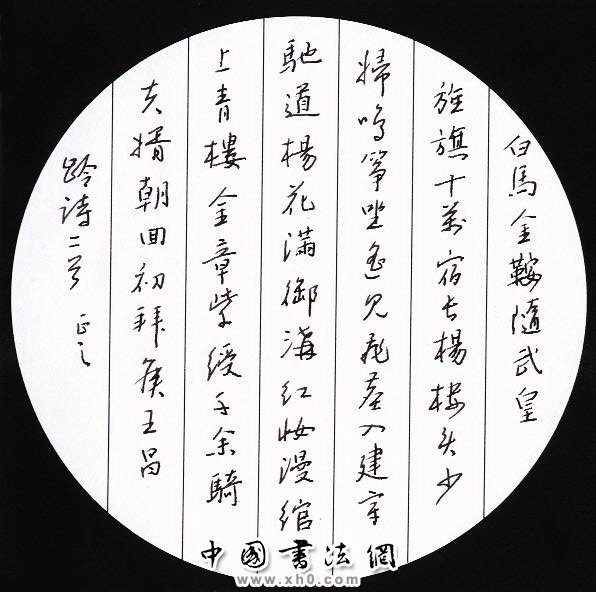 白馬金鞍隨武皇
旌旗十萬宿长楊樓头少
婦鳴箏坐遙见飛塵入建章
馳道楊花滿御溝红妝漫綰
上青樓金章紫綬千余騎
夫婿朝回初拜侯王昌
齡诗二首 正之
中國書法網
www.xh0.com